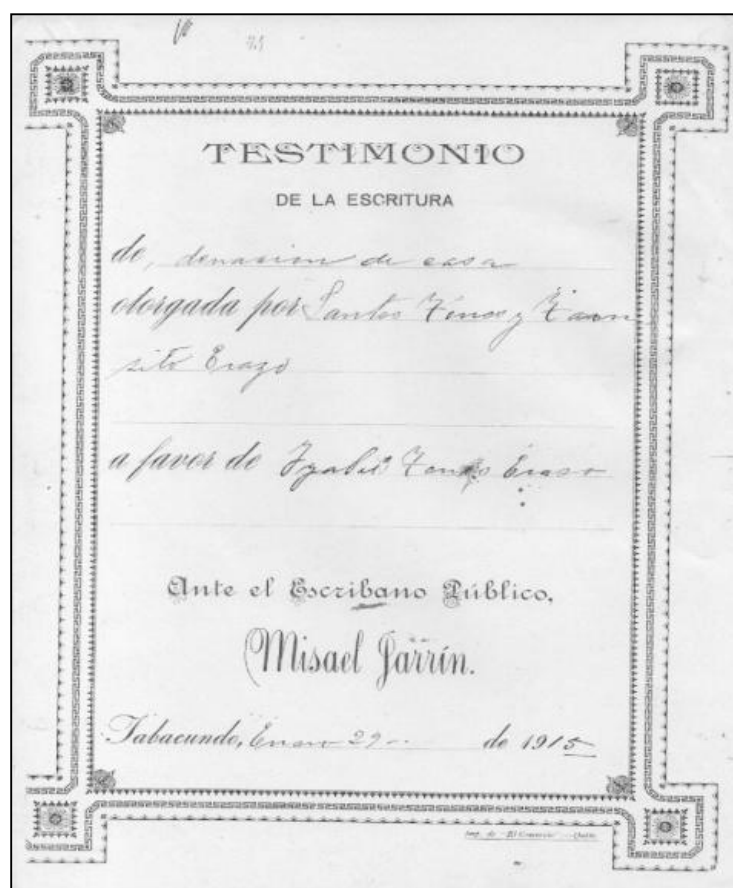 TESTIMONIO
DE LA ESCRITURA
de, donacion de casa
otorgada por Santos y
sito Erazo
a favor de Erazo
Ante el Escribano Público,
Misael Jarrín.
Tabacundo, Enero 29 de 1915
Imp. de "El Comercio" - Quito.